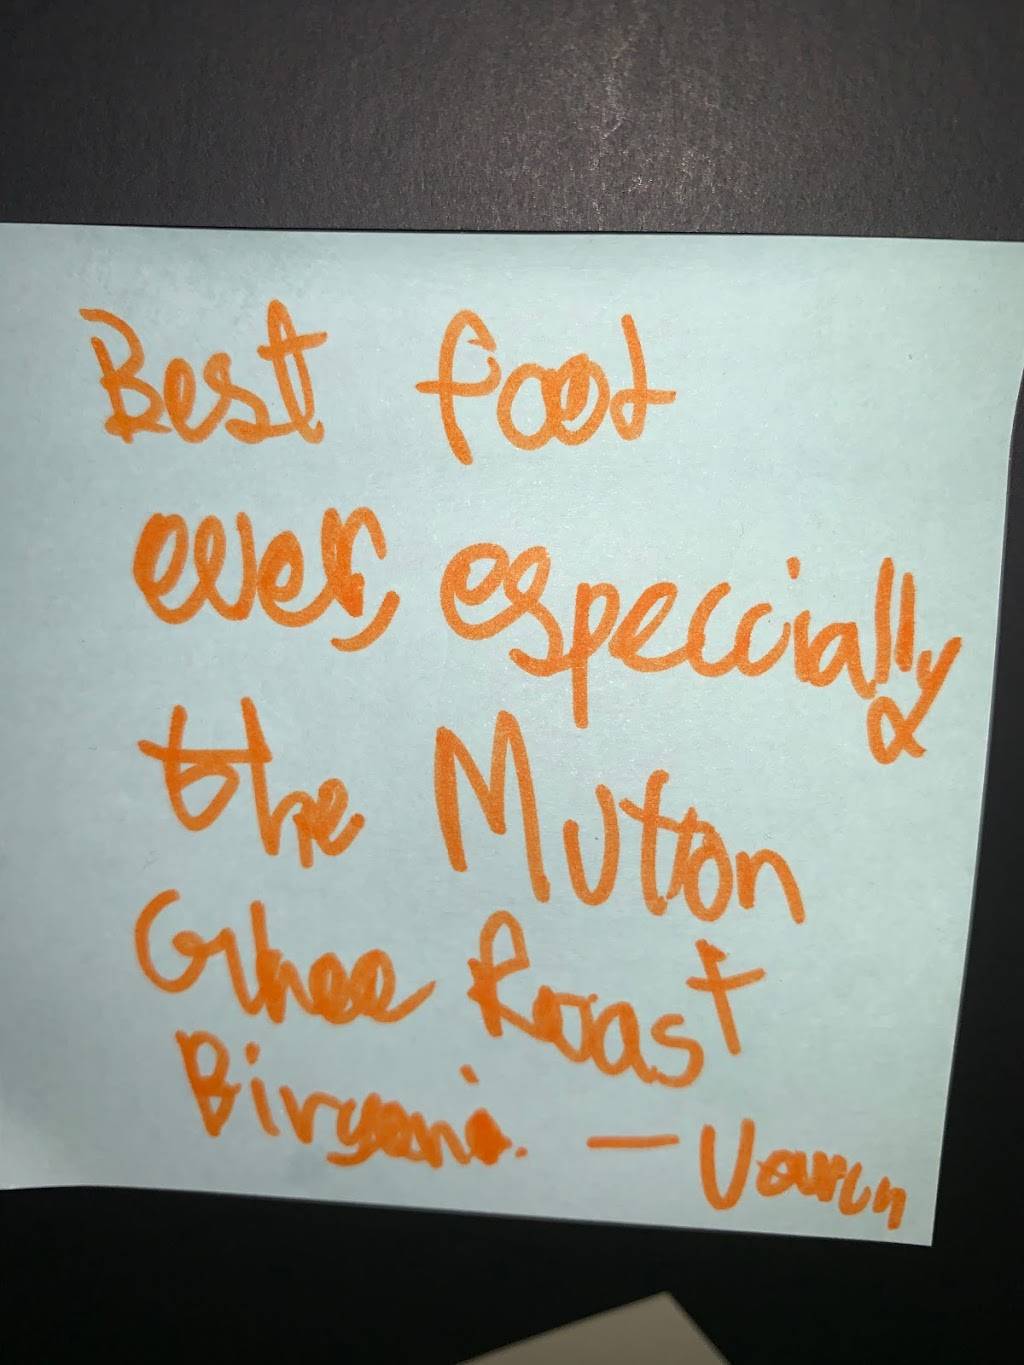 Best food
ever, especcially
the Mutton
Ghee Roast
Biryani. — Varun